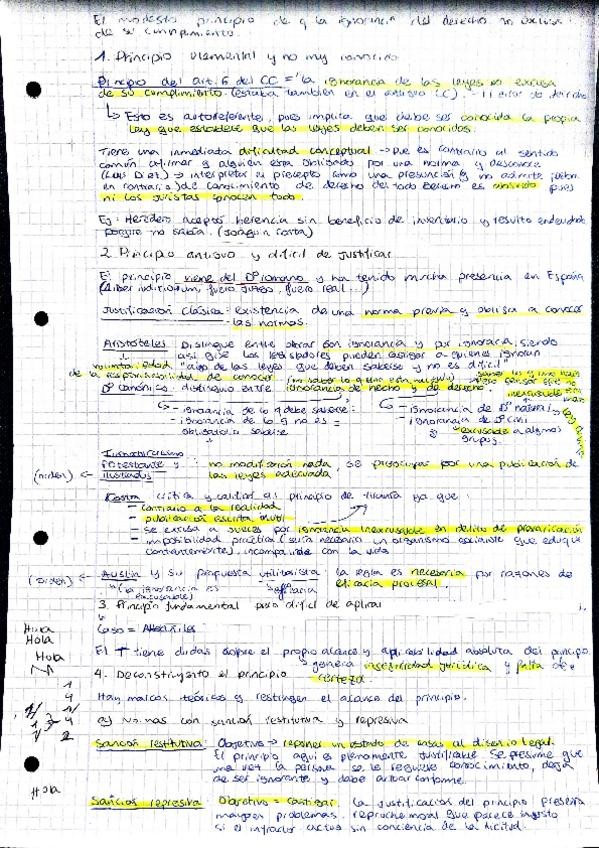 El modesto principio de q la ignorancia del derecho no excusa
de su cumplimiento.
1. Principio elemental y no muy conocido
Principio del art. 6 del CC = "la ignorancia de las leyes no excusa
de su cumplimiento. (estaba también en el antiguo CC).
↳ Esto es autoreferente, pues implica que debe ser conocida la propia
ley que establece que las leyes deben ser conocidas.
Tiene una inmediata dificultad conceptual → pues es contrario al sentido
común afirmar q alguien está obligado por una norma q desconoce
→ interpretar el precepto como una presunción (q no admite
en contrario) de conocimiento de derecho del todo es absurdo pues
ni los juristas conocen todo.
Ej: Heredero aceptó herencia sin beneficio de inventario y resultó endeudado
porque no sabía. (Joaquín Costa)
2. Principio antiguo y difícil de justificar
El principio viene del Dº romano y ha tenido mucha presencia en España
(Liber iudiciorum, fuero juzgo, fuero real...)
Justificación clásica: existencia de una norma previa q obliga a conocer
las normas.
Aristóteles distingue entre obrar con ignorancia y por ignorancia, siendo
así que los legisladores pueden castigar a quienes ignoran
"algo de las leyes que deben saberse y no es difícil"
de la responsabilidad de conocer
Dº canónico: distingue entre ignorancia de hecho y de derecho.
- ignorancia de lo q debe saberse - ignorancia de Dº natural
- ignorancia de lo q no es - ignorancia de Dº civil
obligatorio saberse excusable a algunos
grupos.
Iusnaturalismo
protestante y : no modificación nada, se preocupar por una publicación de
(niegan) ← ilustrados las leyes adecuada.
Costa critica y califica al principio de tiranía ya que:
- contrario a la realidad
- publicación escrita inútil
- se excusa a jueces por ignorancia inexcusable en delito de prevaricación
- imposibilidad práctica (sería necesario un organismo que eduque
constantemente), incompatible con la vida
← Austin y su propuesta utilitarista: la regla es necesaria por razones de
"(la ignorancia es eficacia procesal.
excusable)
3. Principio fundamental pero difícil de aplicar
Hola
Hola
Hola
Caso =
El T tiene dudas sobre el propio alcance y aplicabilidad absoluta del principio
→ genera inseguridad jurídica y falta de
certeza.
4. Deconstruyendo el principio
Hay marcos teóricos q restringen el alcance del principio.
a) Normas con sanción restitutiva y represiva
Sanción restitutiva: Objetivo → reponer un estado de cosas al diseño legal.
El principio aquí es plenamente justificable. Se presume que
una vez la persona se le requiere conocimiento, deja
de ser ignorante y debe actuar conforme.
Hola
Sanción represiva Objetivo = castigar. La justificación del principio presenta
mayores problemas. reproche moral que parece injusto
si el infractor actúa sin conciencia de la ilicitud.